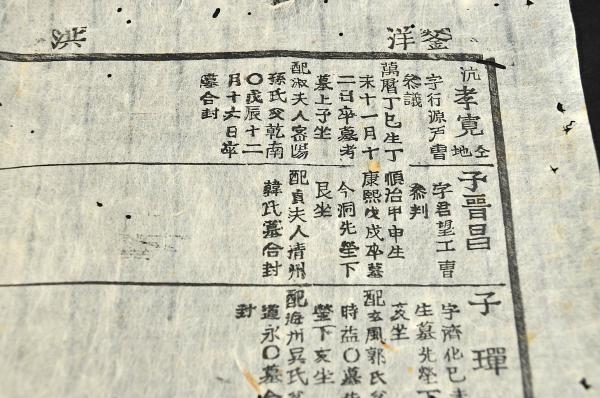 釜洋
洪
沆孝寬
仝地
字行源戶曹
參議
萬曆丁巳生丁
未十一月十
二日卒墓考
墓上子坐
配淑夫人密陽
孫氏父乾南
〇戊辰十二
月十六日卒
墓合封
子晋昌
字君望工曹
參判
順治甲申生
康熙戊戌卒墓
今洞先塋下
艮坐
配貞夫人清州
韓氏墓合封
子琿
字濟化巳未
生墓先塋下
亥坐
配玄風郭氏父
時益〇墓先
塋下亥坐
配海州吳氏父
道永〇墓合
封